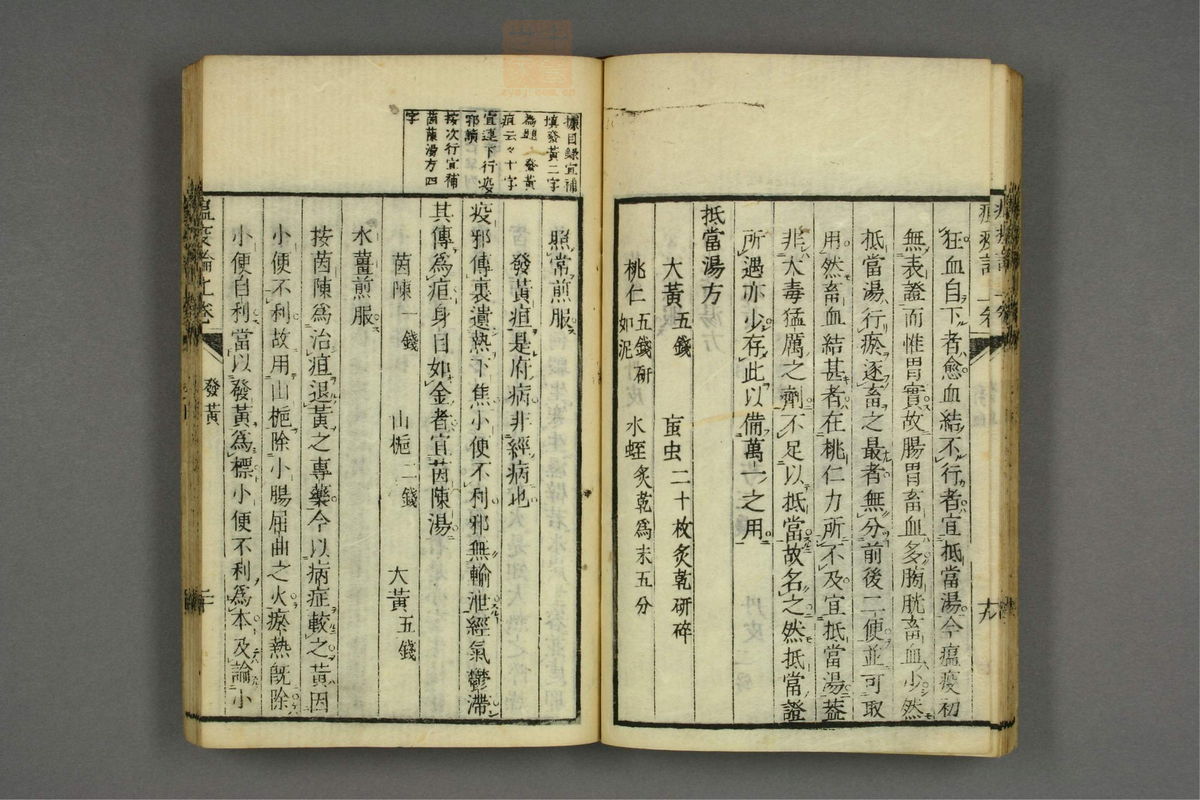 狂血自下者愈血結不行者宜抵當湯今瘟疫初
無表證而惟胃實故腸胃畜血多膀胱畜血少然
抵當湯行瘀逐畜之最者無分前後二便並可取
用然畜血結甚者在桃仁力所不及宜抵當湯葢
非大毒猛厲之劑不足以抵當故名之然抵當證
所遇亦少存此以備萬一之用
抵當湯方
大黃五錢 䖟虫二十枚炙乾研碎
桃仁五錢研如泥 水蛭炙乾爲末五分
十九
據目錄宜補
填發黃二字
為題 發黃
疸云々十字
宜連下行疫
邪讀
按次行宜補
茵蔯湯方四
字
照常煎服
發黃疸是府病非經病也
疫邪傳裏遺熱下焦小便不利邪無輸泄經氣鬱滯
其傳爲疸身目如金者宜茵陳湯
茵陳一錢 山梔二錢 大黃五錢
水薑煎服
按茵陳爲治疸退黃之專藥今以病症較之黃因
小便不利故用山梔除小腸屈曲之火瘀熱旣除
小便自利當以發黃爲標小便不利爲本及論小
瘟疫論上卷 發黃 二十